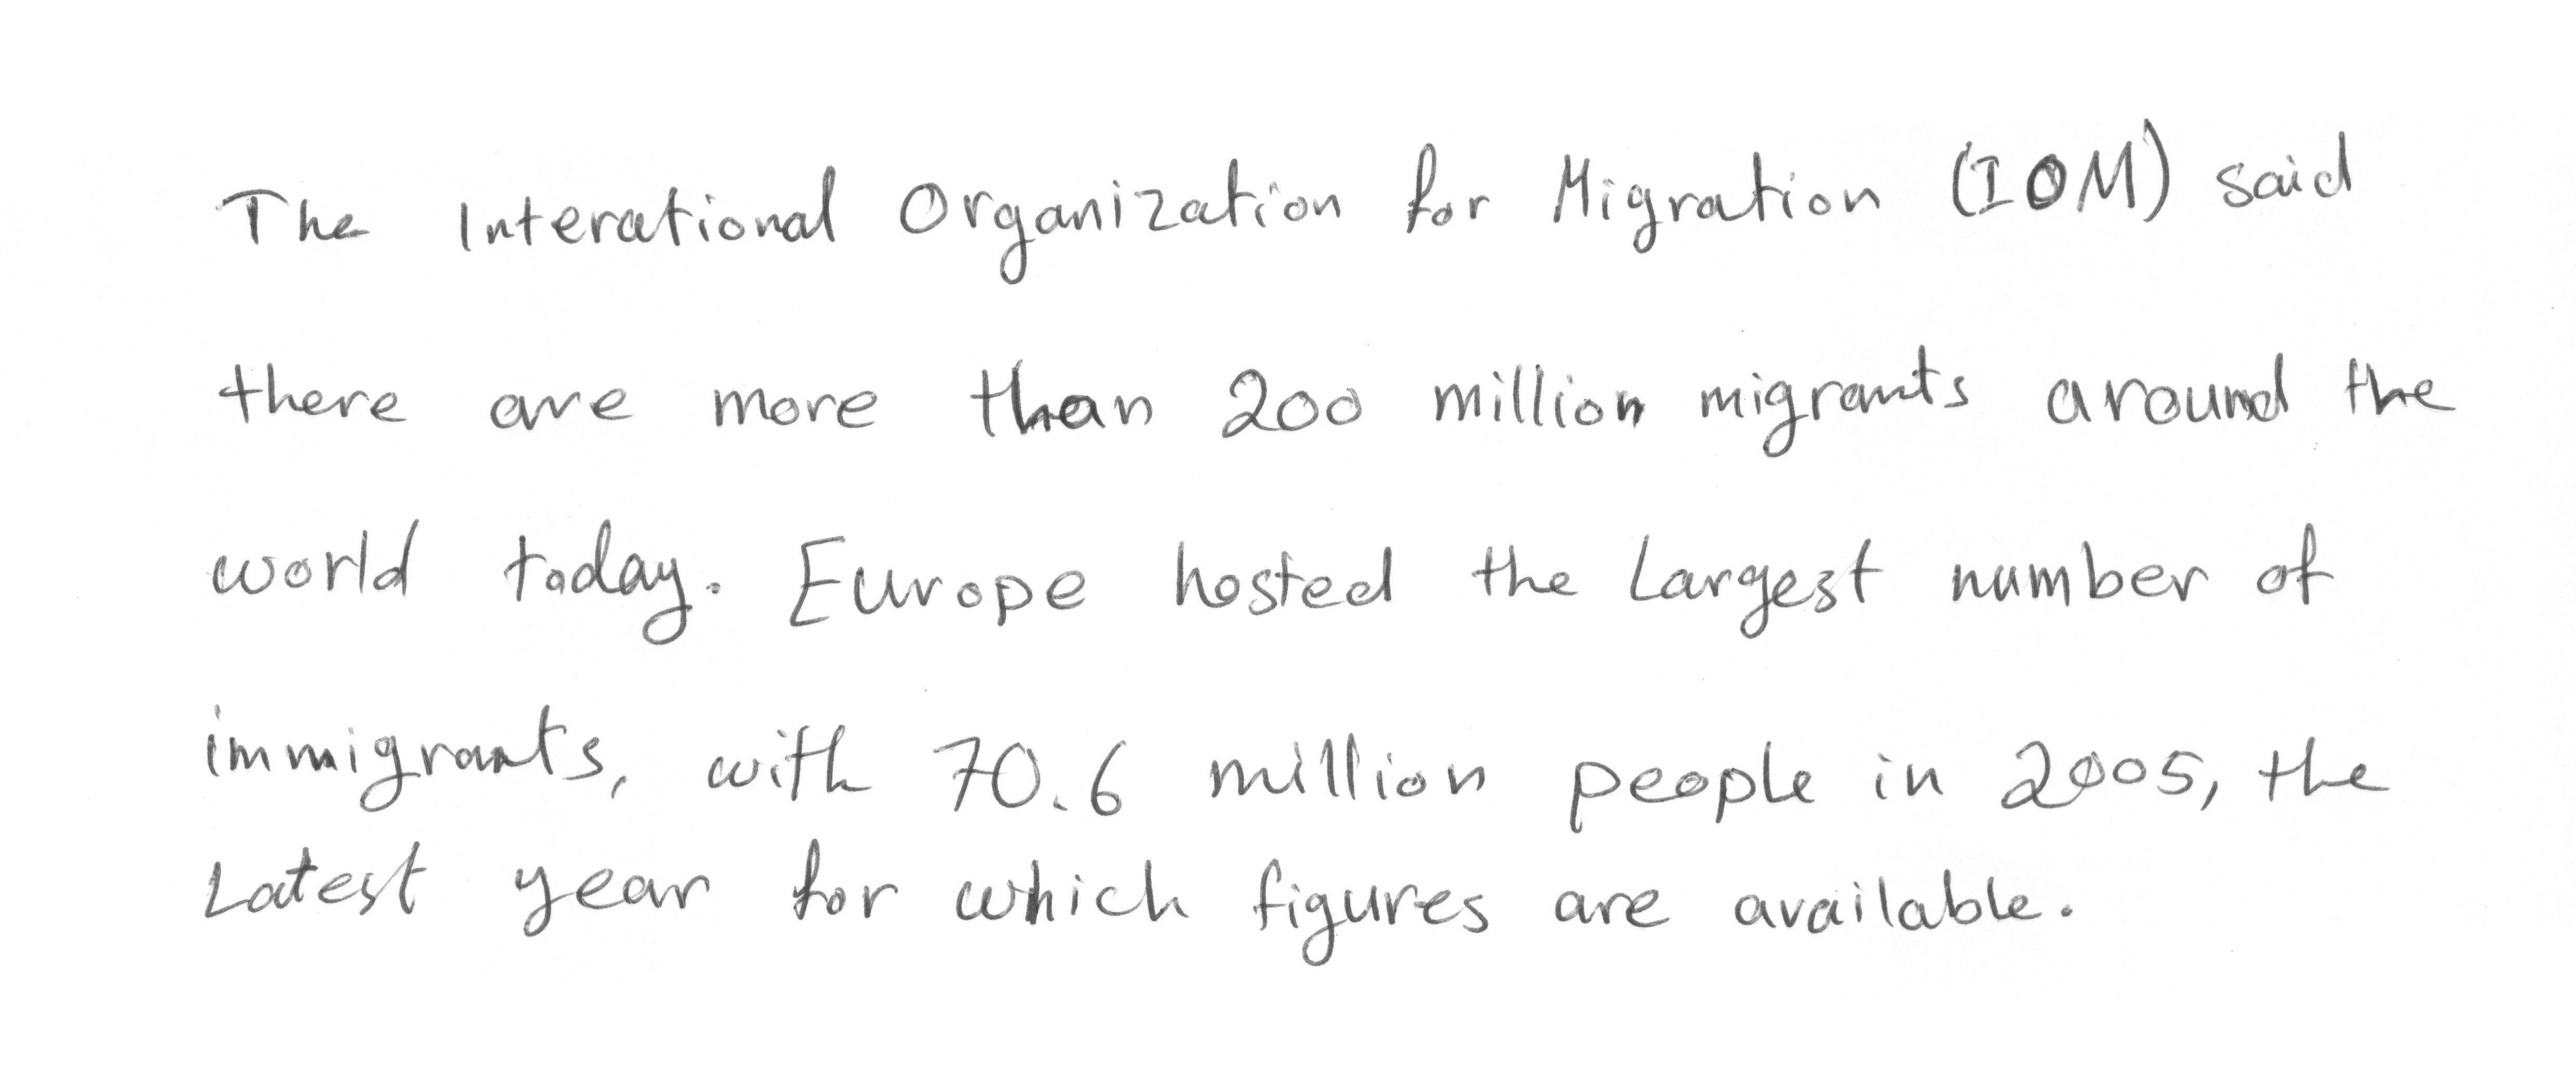 The Interational Organization for Migration (IOM) said
there are more than 200 million migrants around the
world today. Europe hosted the Largest number of
immigrants, with 70.6 million people in 2005, the
Latest year for which figures are available.